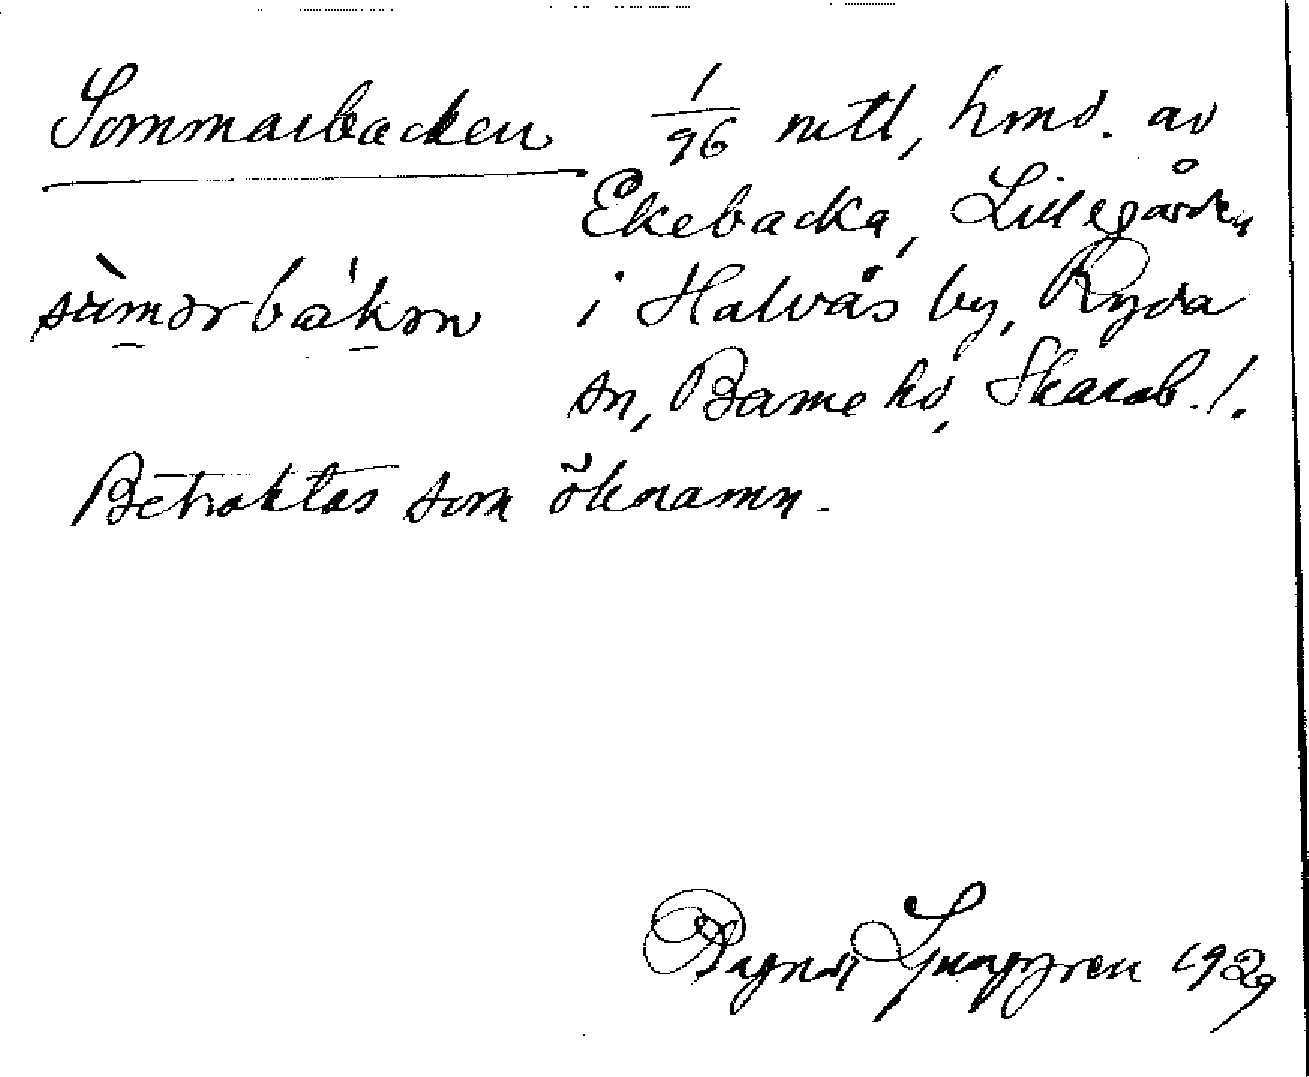 Sommarbacken 1/96 mtl, hmd. av
Ekebacka, Lillegården
sùmərbákən i Halvås by, Ryda
sn, Barne hd, Skarab. l.
Betraktas som öknamn.
Ragnar Ljunggren 1929